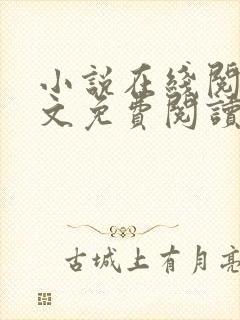 小説在綫閱
文免費閱讀
古城上有月亮